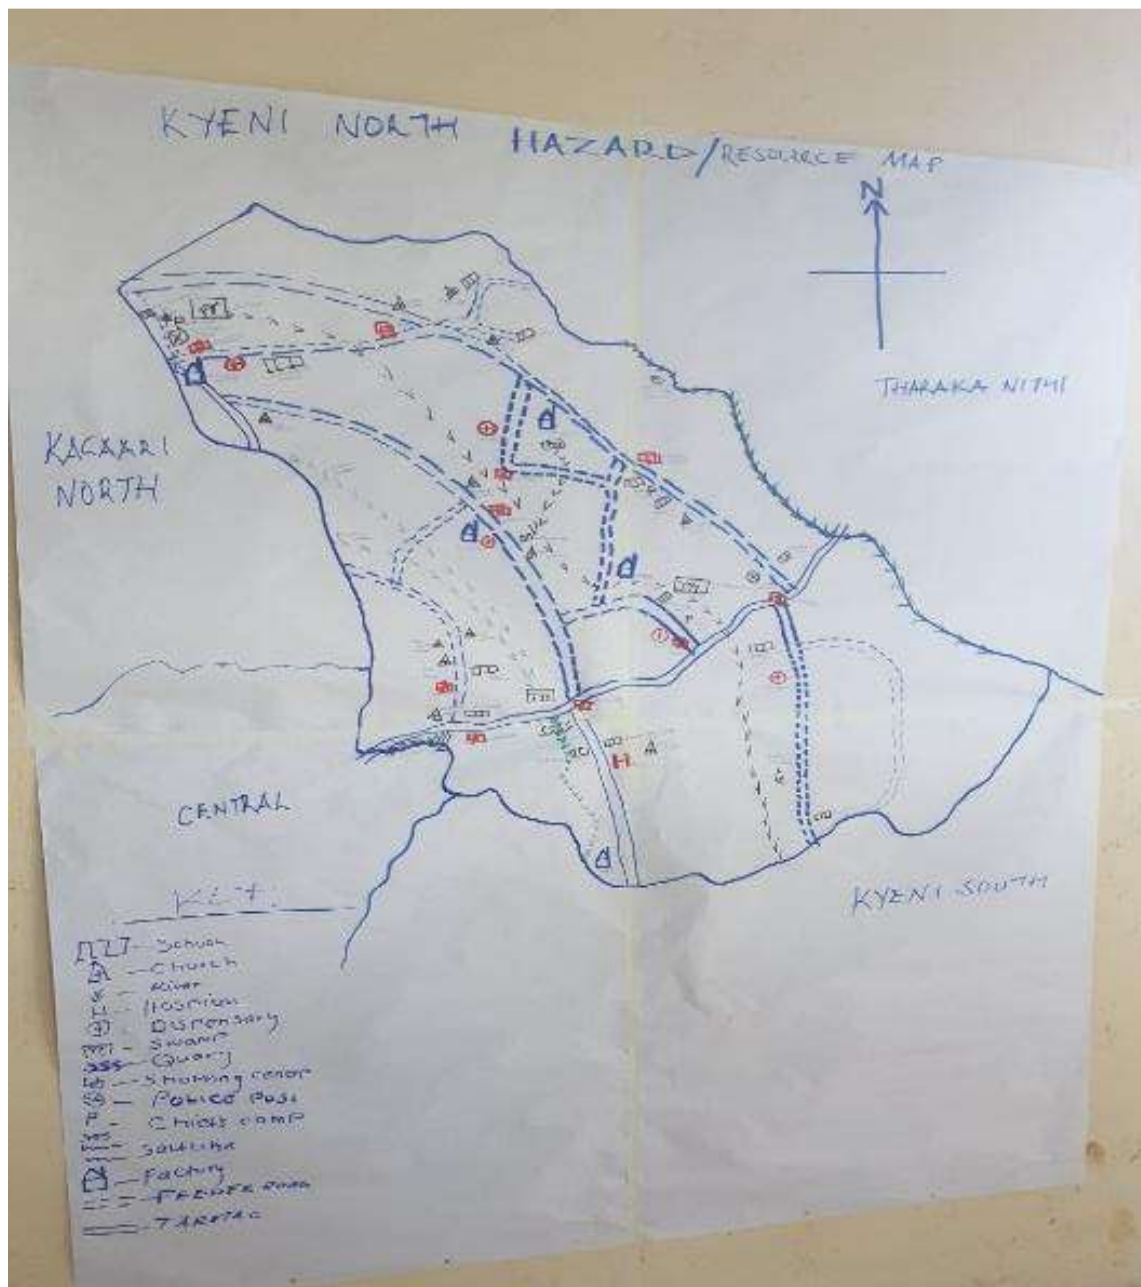 KYENI NORTH HAZARD/RESOURCE MAP
N
THARAKA NITHI
KAGAARI
NORTH
CENTRAL
KYENI SOUTH
KEY.
School
Church
River
H
Dispensary
Swamp
Quary
Shopping
Police Post
P - Chiefs camp
Factory
FEEDER ROAD
TARMAC
H